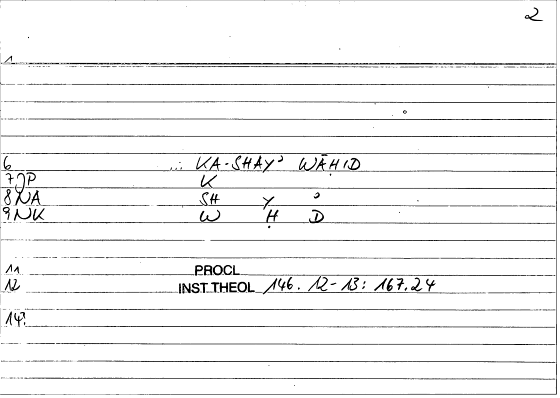 2
1
6 ..: KA-SHAYʾ WĀḤID
7 JP K
8 NA SH Y ʾ
9 NK W Ḥ D
11 PROCL
12 INST.THEOL 146. 12-13: 167.24
14?